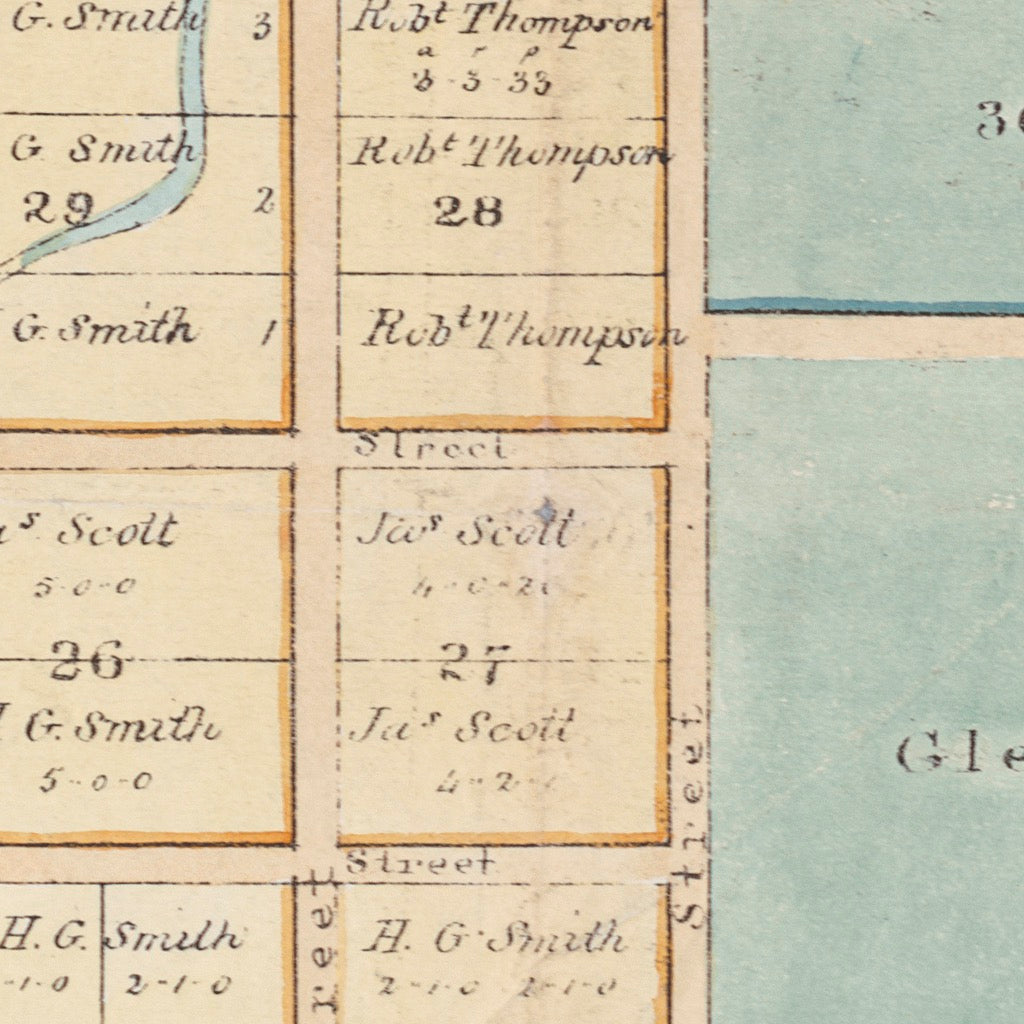 G. Smith 3
Robt Thompson
a r p
3-3-33
36
G. Smith
29 2
Robt Thompson
28
G. Smith 1
Robt Thompson
Street
s Scott
5-0-0
Jas Scott
4-0-2
26
27
G. Smith
5-0-0
Jas Scott
4-2-
Street
Gle
Street
reet
H. G. Smith
-1-0 2-1-0
H. G. Smith
2-1-0 2-1-0